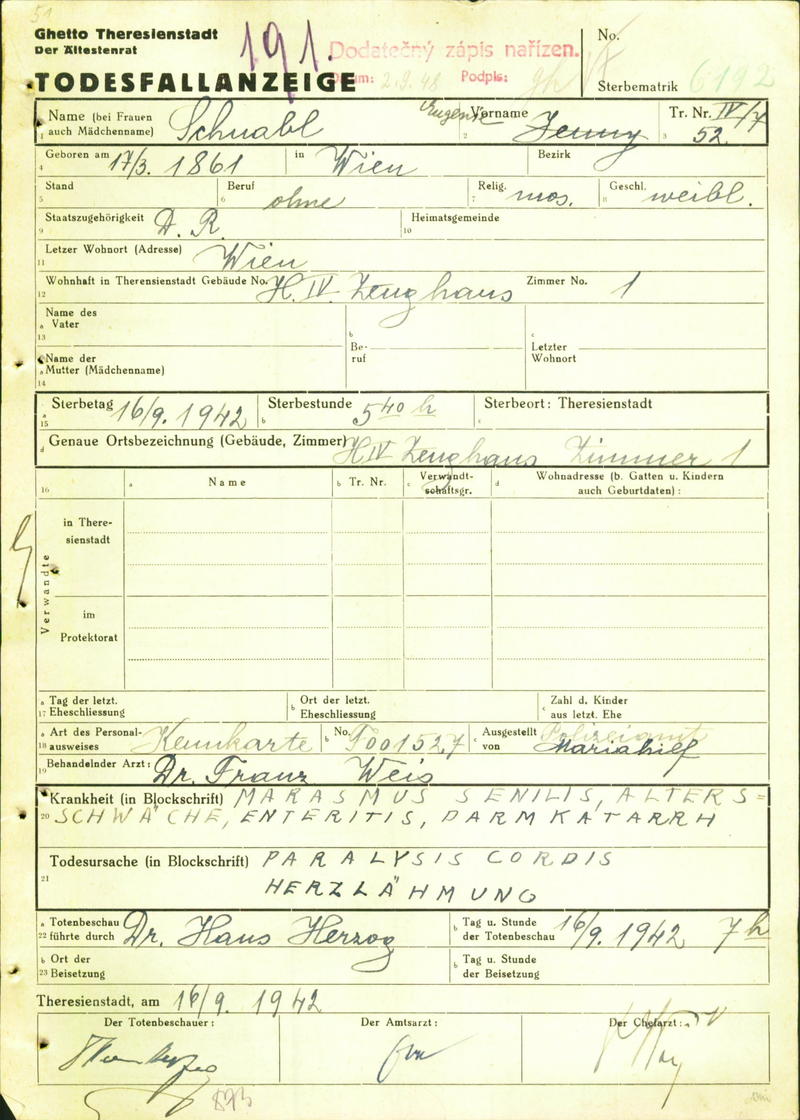 51
Ghetto Theresienstadt
Der Ältestenrat
191.
Dodatečný zápis nařízen.
Datum: 2.9.48 Podpis:
No.
TODESFALLANZEIGE
Sterbematrik 6192
Name (bei Frauen auch Mädchenname) Schnabl
1
Eugenie
Vorname Jenny
2
Tr. Nr. IV/7
3 52.
Geboren am 17/3. 1861 in Wien Bezirk
4
Stand Beruf ohne Relig. mos. Geschl. weibl.
5 6 7 8
Staatszugehörigkeit D. R. Heimatsgemeinde
9 10
Letzer Wohnort (Adresse) Wien
11
Wohnhaft in Theresienstadt Gebäude No. H. IV. Zeughaus Zimmer No. 1
12
Name des
a Vater
13
b Be-
ruf
c Letzter
Wohnort
Name der
a Mutter (Mädchenname)
14
a Sterbetag 16/9. 1942 b Sterbestunde 5 40 h c Sterbeort: Theresienstadt
15
d Genaue Ortsbezeichnung (Gebäude, Zimmer) H IV Zeughaus Zimmer 1
16 a Name b Tr. Nr. c Verwandt-
schaftsgr. d Wohnadresse (b. Gatten u. Kindern
auch Geburtdaten) :
Verwandte
in There-
sienstadt
im
Protektorat
a Tag der letzt.
17 Eheschliessung
b Ort der letzt.
Eheschliessung
c Zahl d. Kinder
aus letzt. Ehe
a Art des Personal-
18 ausweises Kennkarte
b No. J001527
c Ausgestellt von Polizeiamt
Mariahilf
Behandelnder Arzt: Dr. Franz Weis
19
Krankheit (in Blockschrift) MARASMUS SENILIS, ALTERS=
20 SCHWÄCHE, ENTERITIS, DARMKATARRH
Todesursache (in Blockschrift) PARALYSIS CORDIS
21 HERZLÄHMUNG
a Totenbeschau
22 führte durch Dr. Hans Herzog
b Tag u. Stunde
der Totenbeschau 16/9. 1942 7 h
b Ort der
23 Beisetzung
b Tag u. Stunde
der Beisetzung
Theresienstadt, am 16/9. 1942
Der Totenbeschauer: Der Amtsarzt: Der Chefarzt: